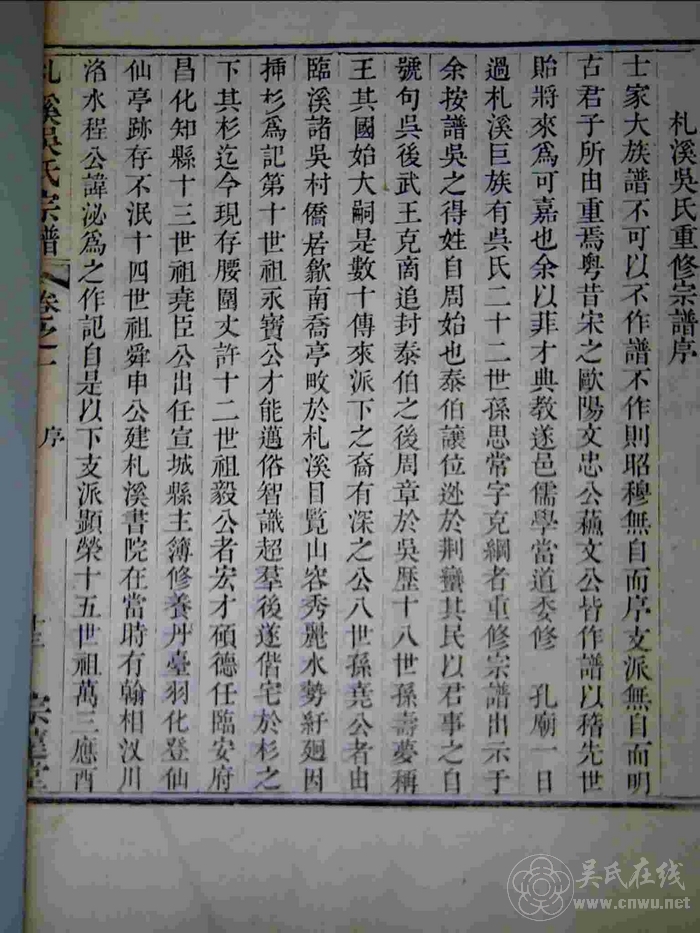 札溪吳氏重修宗譜序
士家大族譜不可以不作譜不作則昭穆無自而序支派無自而明
古君子所由重焉粵昔宋之歐陽文忠公蘓文公皆作譜以稽先世
貽將來爲可嘉也余以菲才典教遂邑儒學當道委修 孔廟一日
過札溪巨族有吳氏二十二世孫思常字克綱者重修宗譜出示于
余按譜吳之得姓自周始也泰伯讓位逊於荆蠻其民以君事之自
號句吳後武王克商追封泰伯之後周章於吳歷十八世孫壽夢稱
王其國始大嗣是數十傳來派下之裔有深之公八世孫堯公者由
臨溪諸吳村僑居歙南喬亭畋於札溪目覧山容秀麗水勢紆廻因
揷杉爲記第十世祖永寶公才能邁俗智識超羣後遂偕宅於杉之
下其杉迄今現存腰圍丈許十二世祖毅公者宏才碩德任臨安府
昌化知縣十三世祖堯臣公出任宣城縣主簿修養丹臺羽化登仙
仙亭跡存不泯十四世祖舜申公建札溪書院在當時有翰相汊川
洺水程公諱泌爲之作記自是以下支派顯榮十五世祖萬三應酉
札溪吳氏宗譜 卷之一 序 十三
吴氏在线
www.cnwu.net